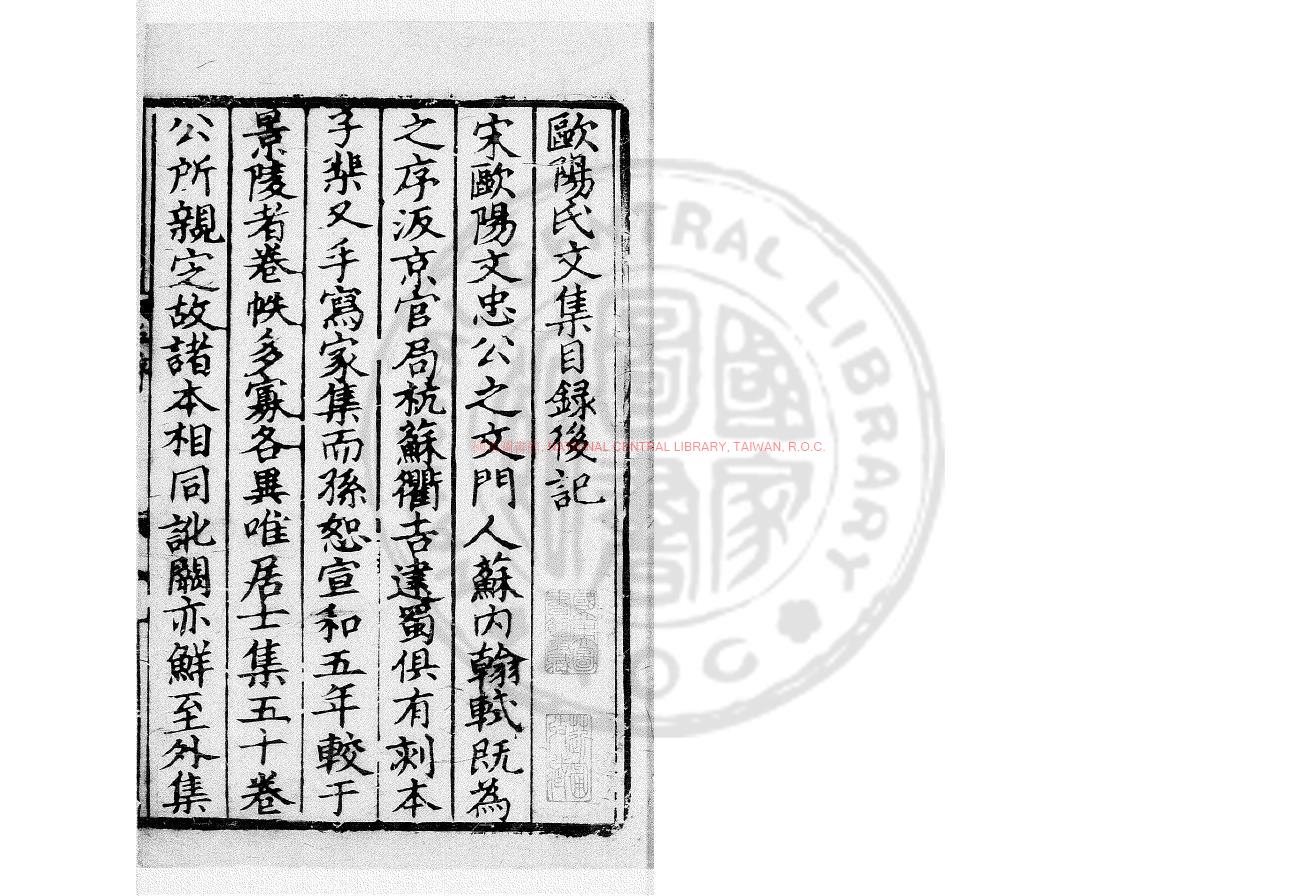 歐陽氏文集目録後記
宋歐陽文忠公之文門人蘇内翰軾既為
之序汳京官局杭蘇衢吉建蜀俱有刻本
子棐又手寫家集而孫恕宣和五年較于
景陵者卷帙多寡各異唯居士集五十卷
公所親定故諸本相同訛闕亦鮮至外集
NATIONAL CENTRAL LIBRARY, TAIWAN, R.O.C.